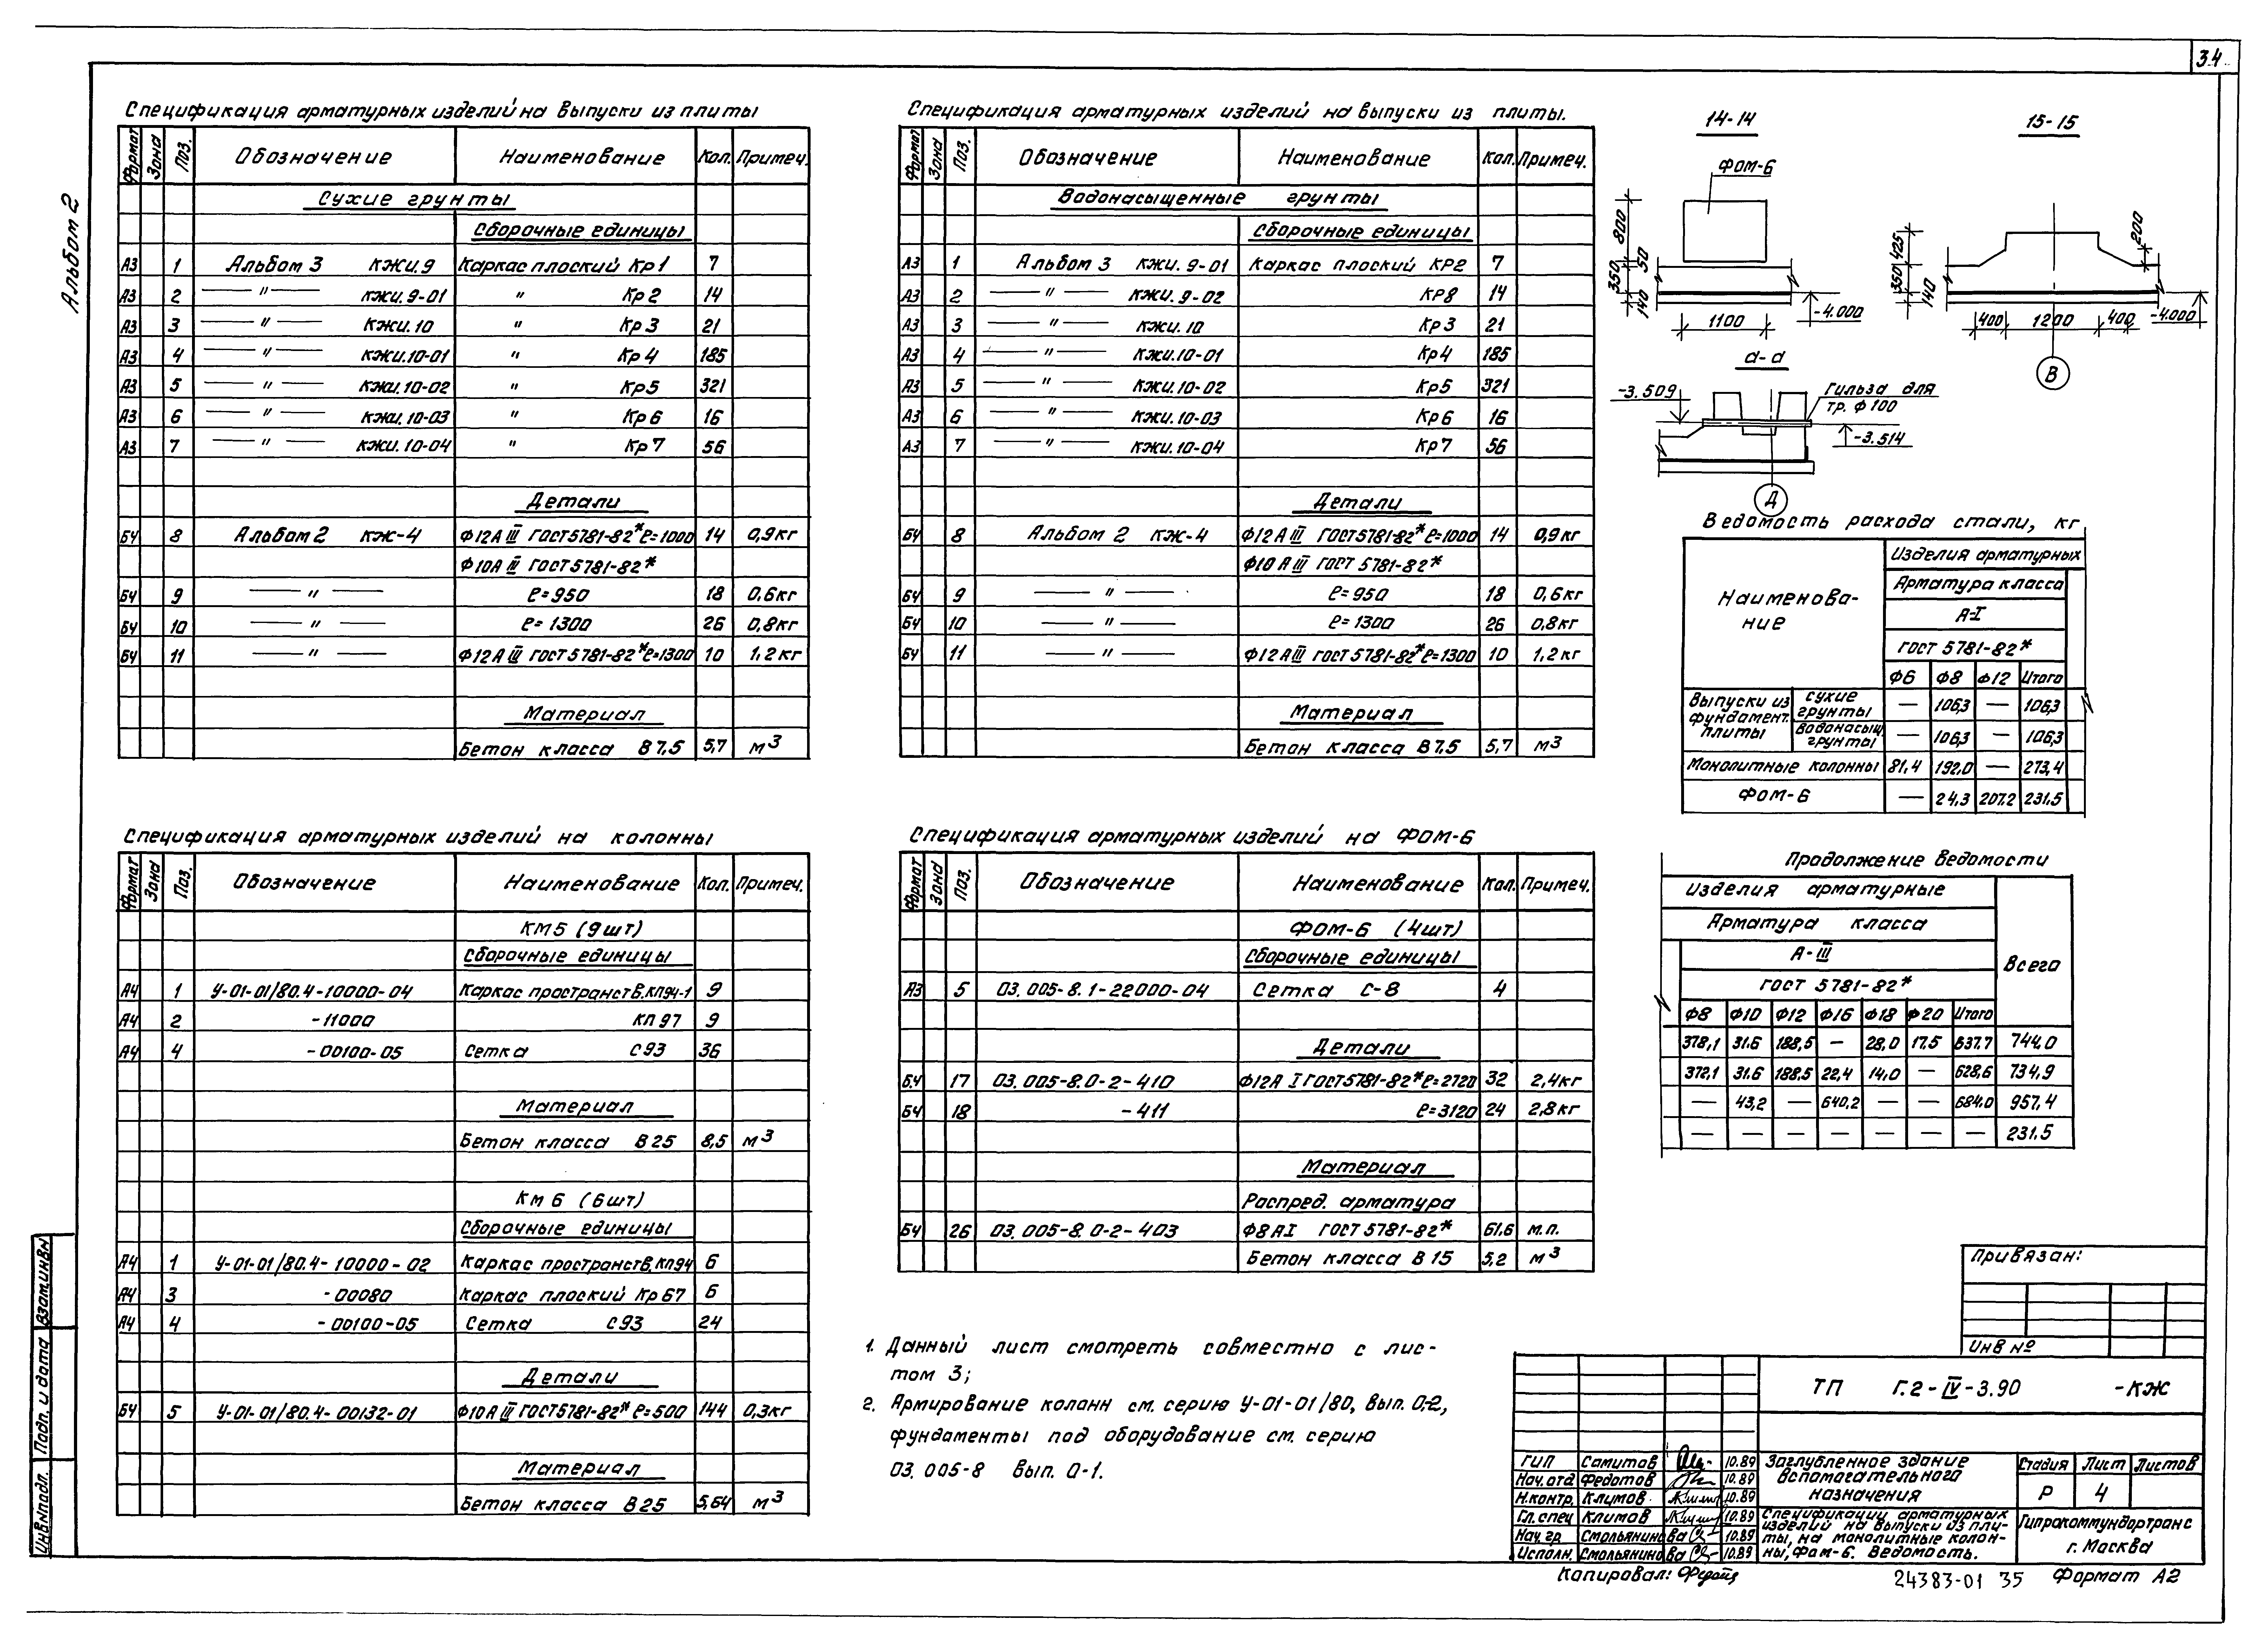 34
Альбом 2
Спецификация арматурных изделий на выпуски из плиты
Формат Зона Поз. Обозначение Наименование Кол. Примеч.
Сухие грунты
Сборочные единицы
А3 1 Альбом 3 КЖИ.9 Каркас плоский Кр1 7
А3 2 — " — КЖИ.9-01 " Кр2 14
А3 3 — " — КЖИ.10 " Кр3 21
А3 4 — " — КЖИ.10-01 " Кр4 185
А3 5 — " — КЖИ.10-02 " Кр5 321
А3 6 — " — КЖИ.10-03 " Кр6 16
А3 7 — " — КЖИ.10-04 " Кр7 56
Детали
БЧ 8 Альбом 2 КЖ-4 Ф12А III ГОСТ 5781-82* ℓ=1000 14 0,9кг
Ф10А III ГОСТ 5781-82*
БЧ 9 — " — ℓ=950 18 0,6кг
БЧ 10 — " — ℓ=1300 26 0,8кг
БЧ 11 — " — Ф12А III ГОСТ 5781-82* ℓ=1300 10 1,2кг
Материал
Бетон класса В7,5 5,7 м3
Спецификация арматурных изделий на выпуски из плиты.
Формат Зона Поз. Обозначение Наименование Кол. Примеч.
Водонасыщенные грунты
Сборочные единицы
А3 1 Альбом 3 КЖИ.9-01 Каркас плоский КР2 7
А3 2 — " — КЖИ.9-02 КР8 14
А3 3 — " — КЖИ.10 Кр3 21
А3 4 — " — КЖИ.10-01 Кр4 185
А3 5 — " — КЖИ.10-02 Кр5 321
А3 6 — " — КЖИ.10-03 Кр6 16
А3 7 — " — КЖИ.10-04 Кр7 56
Детали
БЧ 8 Альбом 2 КЖ-4 Ф12А III ГОСТ 5781-82* ℓ=1000 14 0,9кг
Ф10А III ГОСТ 5781-82*
БЧ 9 — " — ℓ=950 18 0,6кг
БЧ 10 — " — ℓ=1300 26 0,8кг
БЧ 11 — " — Ф12А III ГОСТ 5781-82* ℓ=1300 10 1,2кг
Материал
Бетон класса В7,5 5,7 м3
14-14
ФОМ-6
800
50
350
140
1100
-4.000
15-15
425
200
350
140
400 1200 400
-4.000
В
а-а
-3.509
Гильза для
тр. Ф100
-3.514
Д
Ведомость расхода стали, кг
Наименова-
ние
Изделия арматурных
Арматура класса
А-I
ГОСТ 5781-82*
Ф6 Ф8 Ф12 Итого
Выпуски из фундамент. плиты
сухие грунты — 106,3 — 106,3
водонасыщ. грунты — 106,3 — 106,3
Монолитные колонны 81,4 192,0 — 273,4
ФОМ-6 — 24,3 207,2 231,5
Продолжение ведомости
Изделия арматурные
Арматура класса
А-III
ГОСТ 5781-82*
Всего
Ф8 Ф10 Ф12 Ф16 Ф18 Ф20 Итого
378,1 31.6 188,5 — 28,0 17.5 637.7 744.0
372,1 31.6 188,5 22,4 14,0 — 628,6 734,9
— 43,2 — 640,2 — — 684.0 957,4
— — — — — — — 231.5
Спецификация арматурных изделий на колонны
Формат Зона Поз. Обозначение Наименование Кол. Примеч.
КМ5 (9шт)
Сборочные единицы
А4 1 У-01-01/80.4-10000-04 Каркас пространств. КП94-1 9
А4 2 -11000 КП97 9
А4 4 -00100-05 Сетка С93 36
Материал
Бетон класса В25 8,5 м3
КМ6 (6шт)
Сборочные единицы
А4 1 У-01-01/80.4-10000-02 Каркас пространств. КП94 6
А4 3 -00080 Каркас плоский Кр67 6
А4 4 -00100-05 Сетка С93 24
Детали
БЧ 5 У-01-01/80.4-00132-01 Ф10А III ГОСТ 5781-82* ℓ=500 144 0,3кг
Материал
Бетон класса В25 5,64 м3
Спецификация арматурных изделий на ФОМ-6
Формат Зона Поз. Обозначение Наименование Кол. Примеч.
ФОМ-6 (4шт)
Сборочные единицы
А3 5 03.005-8.1-22000-04 Сетка С-8 4
Детали
БЧ 17 03.005-8.0-2-410 Ф12А I ГОСТ 5781-82* ℓ=2720 32 2,4кг
БЧ 18 -411 ℓ=3120 24 2,8кг
Материал
Распред. арматура
БЧ 26 03.005-8.0-2-403 Ф8АI ГОСТ 5781-82* 61.6 м.п.
Бетон класса В15 5,2 м3
1. Данный лист смотреть совместно с лис-
том 3;
2. Армирование колонн см. серию У-01-01/80, вып. 0-2,
фундаменты под оборудование см. серию
03.005-8 вып. 0-1.
Привязан:
Инв №
ТП Г.2-IV-3.90 -КЖ
ГИП Самитов 10.89
Нач.отд Федотов 10.89
Н.контр. Климов 10.89
Гл.спец Климов 10.89
Нач.гр. Смольянинова 10.89
Исполн. Смольянинова 10.89
Заглубленное здание
вспомогательного
назначения
Стадия Лист Листов
Р 4
Спецификации арматурных
изделий на выпуски из пли-
ты, на монолитные колон-
ны, ФОМ-6. Ведомость.
Гипрокоммундортранс
г. Москва
Копировал:
24383-01 35 Формат А2
Инв№подл. Подп. и дата Взам.инв№